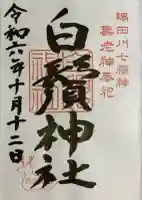 隅田川七福神
壽老神奉祀
白鬚神社
令和六年十月十二日